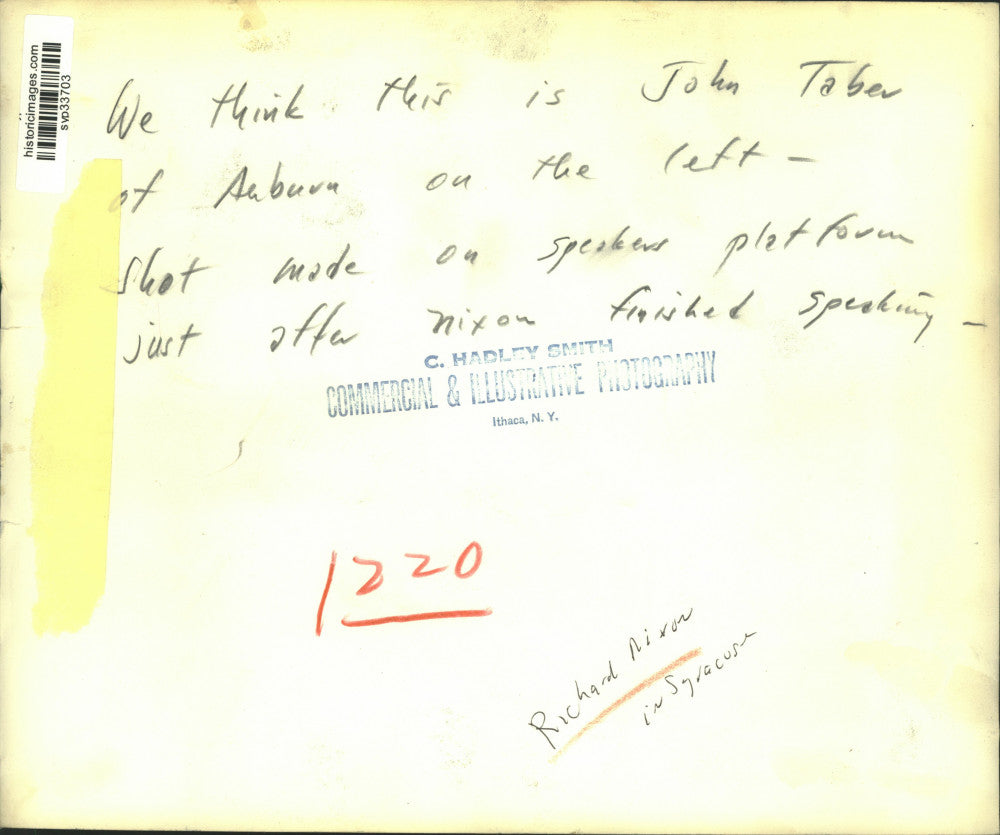 historicimages.com
svp33703
We think this is John Taber
of Auburn on the left —
Shot made on speakers platform
just after Nixon finished speaking —
C. HADLEY SMITH
COMMERCIAL & ILLUSTRATIVE PHOTOGRAPHY
Ithaca, N. Y.
1220
Richard Nixon
in Syracuse